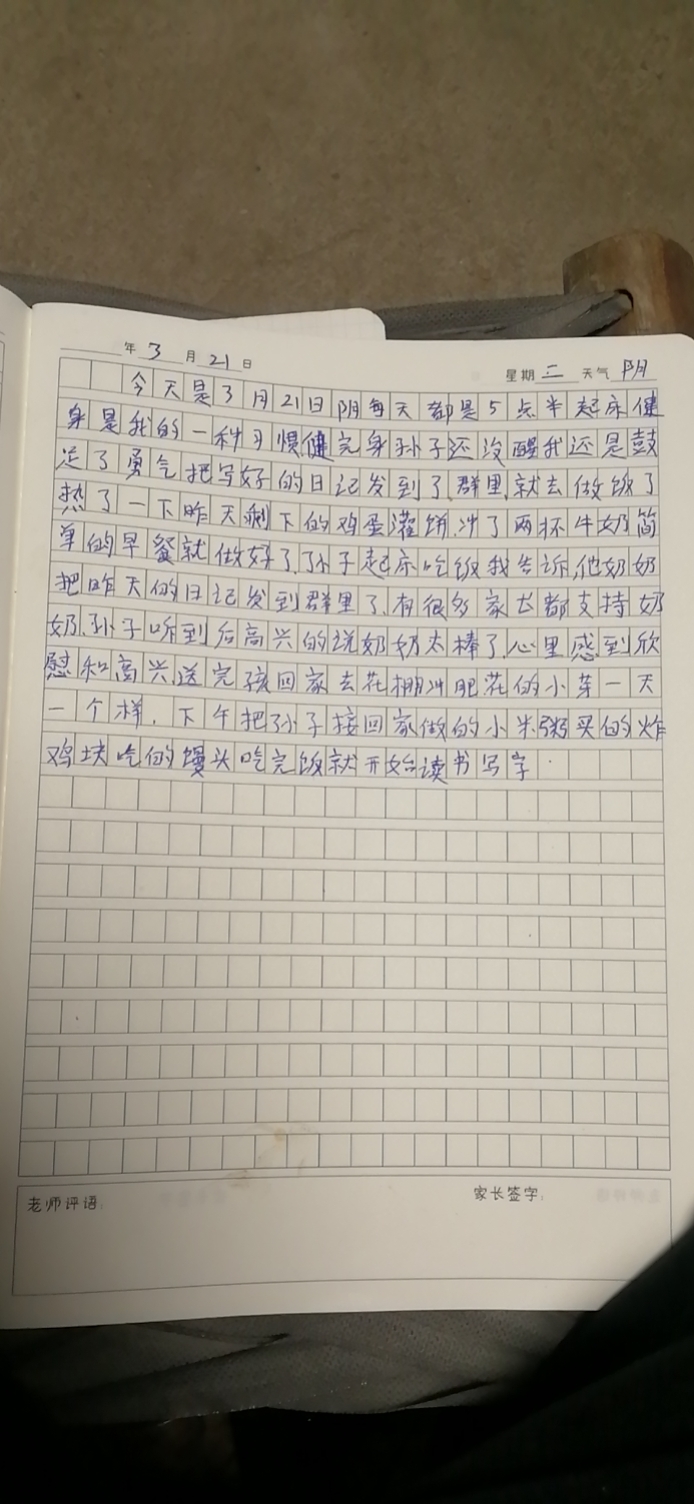 年 3 月 21 日 星期 二 天气 阴
今天是3月21日阴每天都是5点半起床健
身是我的一种习惯健完身孙子还没醒我还是鼓
足了勇气把写好的日记发到了群里,就去做饭了
热了一下昨天剩下的鸡蛋灌饼,冲了两杯牛奶简
单的早餐就做好了,孙子起床吃饭我告诉,他奶奶
把昨天的日记发到群里了,有很多家长都支持奶
奶,孙子听到后高兴的说奶奶太棒了,心里感到欣
慰和高兴,送完孩回家去花棚冲肥花的小芽一天
一个样,下午把孙子接回家做的小米粥买的炸
鸡块吃的馒头吃完饭就开始读书写字.
老师评语:
家长签字: